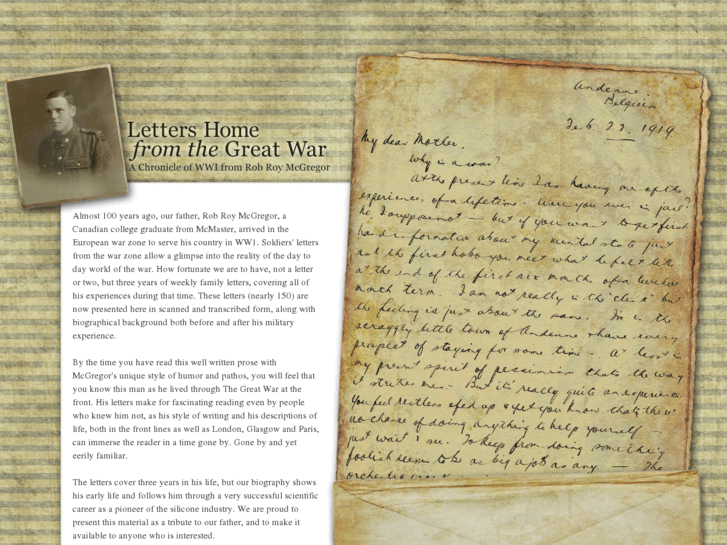 Letters Home
from the Great War
A Chronicle of WWI from Rob Roy McGregor
Almost 100 years ago, our father, Rob Roy McGregor, a
Canadian college graduate from McMaster, arrived in the
European war zone to serve his country in WW1. Soldiers' letters
from the war zone allow a glimpse into the reality of the day to
day world of the war. How fortunate we are to have, not a letter
or two, but three years of weekly family letters, covering all of
his experiences during that time. These letters (nearly 150) are
now presented here in scanned and transcribed form, along with
biographical background both before and after his military
experience.
By the time you have read this well written prose with
McGregor's unique style of humor and pathos, you will feel that
you know this man as he lived through The Great War at the
front. His letters make for fascinating reading even by people
who knew him not, as his style of writing and his descriptions of
life, both in the front lines as well as London, Glasgow and Paris,
can immerse the reader in a time gone by. Gone by and yet
eerily familiar.
The letters cover three years in his life, but our biography shows
his early life and follows him through a very successful scientific
career as a pioneer of the silicone industry. We are proud to
present this material as a tribute to our father, and to make it
available to anyone who is interested.
Andenne.
Belgium
Feb. 22, 1919
My dear Mother.
Why is a war?
At the present time I am having one of the
experiences of a lifetime. Were you ever in jail?
No, I suppose not — but if you want to get first
hand information about my mental state just
ask the first hobo you meet what he felt like
at the end of the first six month of a twelve
month term. I am not really in the "clink" but
the feeling is just about the same. I'm in the
scraggly little town of Andenne & have every
prospect of staying for some time - at least in
my present spirit of pessimism thats the way
it strikes me - But it's really quite an experience.
You feel restless & fed up & yet you know thats there's
no chance of doing anything to help yourself —
just wait & see. To keep from doing something
foolish seems to be as big a job as any — The
orchestra